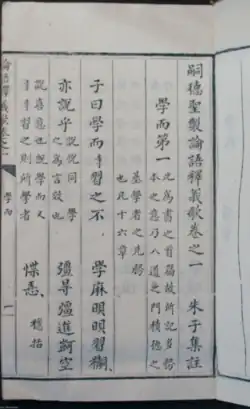 嗣德聖製論語釋義歌卷之一 朱子集註
學而第一 此為書之首篇故所記多務
本之意乃入道之門積德之
基學者之先務
也凡十六章
子曰學而習之不 學麻習
亦說乎 說悅同 學
之為言效也 彊尋彊進空
說喜意也既學而又
習之則所學者
論語釋義歌卷之一 學而 一